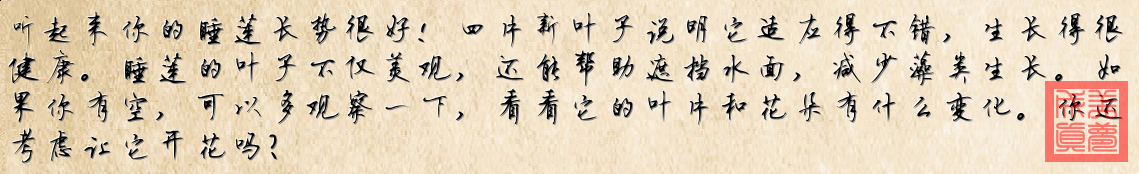 听起来你的睡莲长势很好！四片新叶子说明它适应得不错，生长得很
健康。睡莲的叶子不仅美观，还能帮助遮挡水面，减少藻类生长。如
果你有空，可以多观察一下，看看它的叶片和花朵有什么变化。你还
考虑让它开花吗？